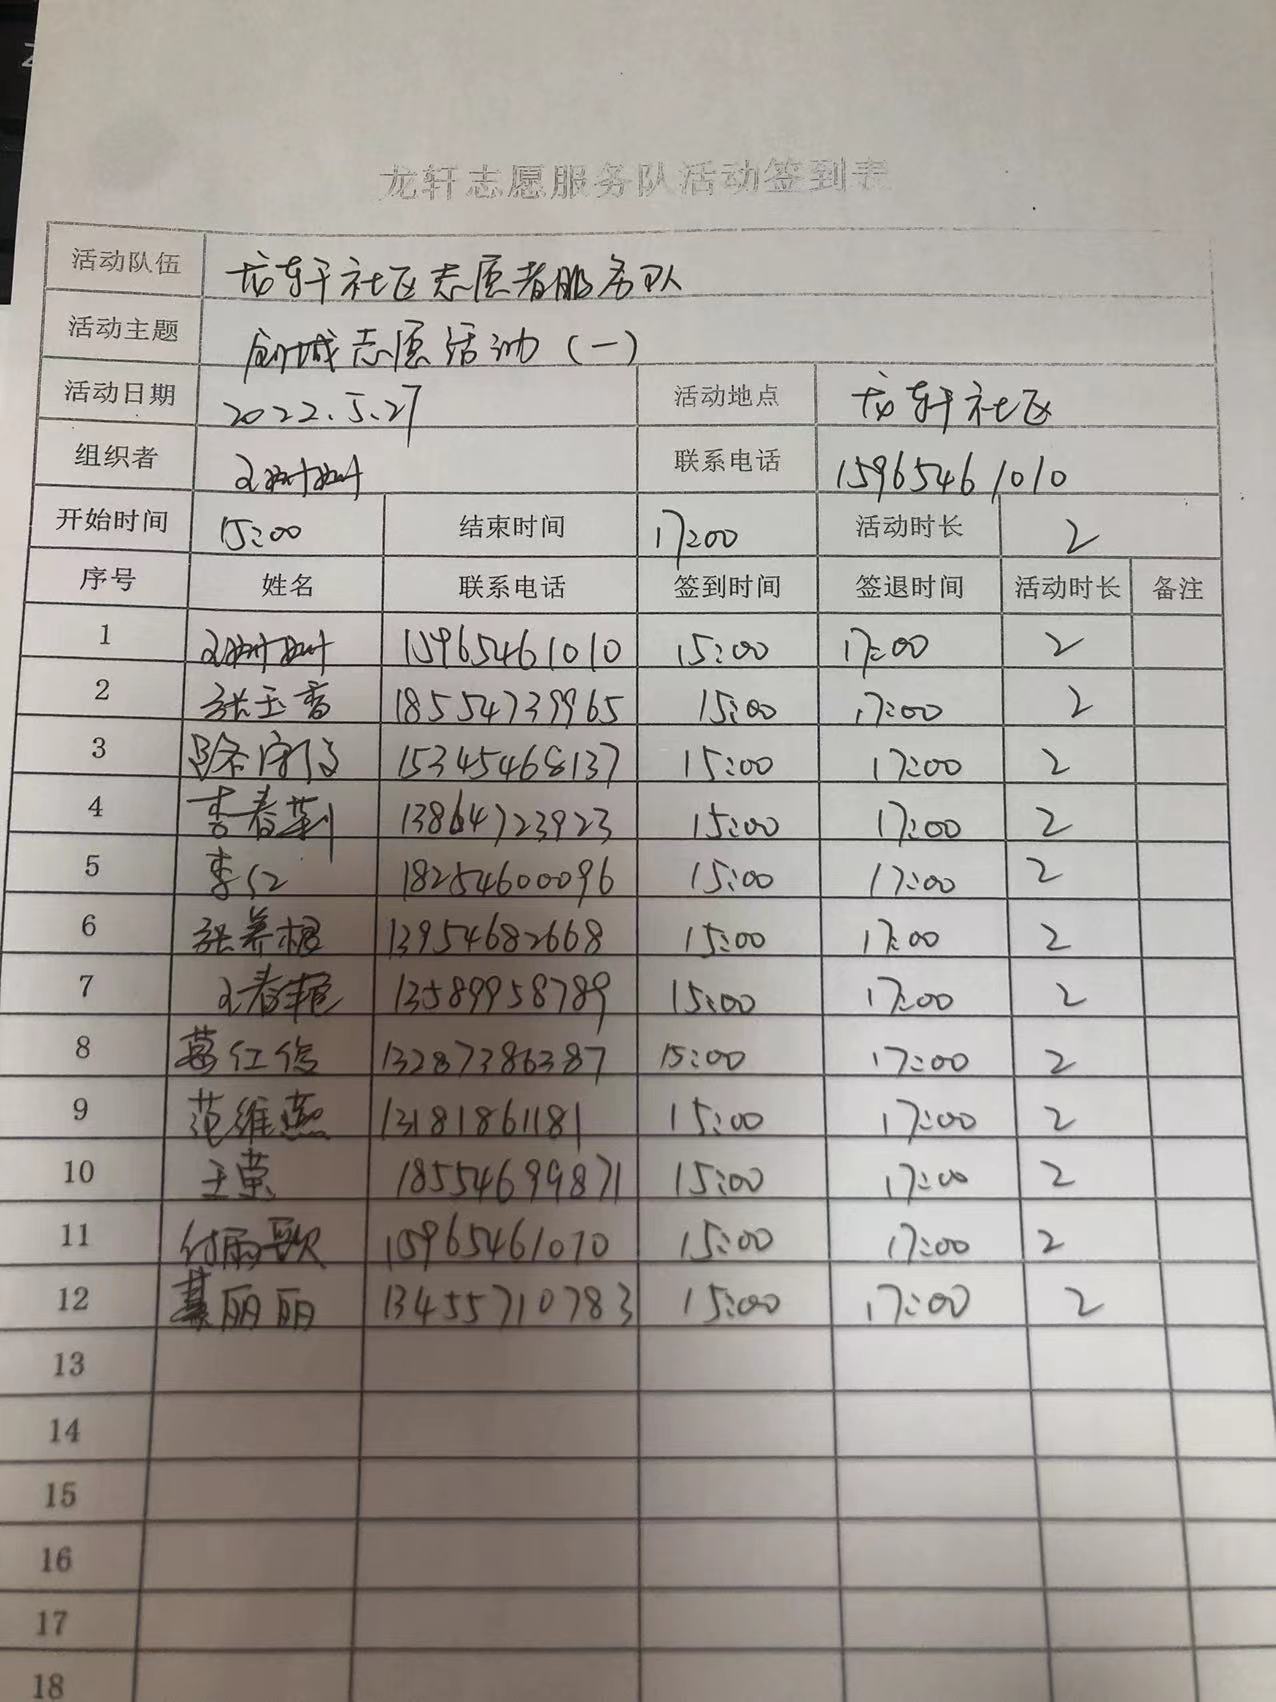 龙轩志愿服务队活动签到表
活动队伍 龙轩社区志愿者服务队
活动主题 创城志愿活动（一）
活动日期 2022.5.27 活动地点 龙轩社区
组织者 联系电话 15965461010
开始时间 15:00 结束时间 17:00 活动时长 2
序号 姓名 联系电话 签到时间 签退时间 活动时长 备注
1 15965461010 15:00 17:00 2
2 张玉香 18554739965 15:00 17:00 2
3 15345468137 15:00 17:00 2
4 李春菊 13864723923 15:00 17:00 2
5 李仁 18254600096 15:00 17:00 2
6 张养根 13954682668 15:00 17:00 2
7 王春艳 13589958789 15:00 17:00 2
8 葛红信 13287386387 15:00 17:00 2
9 范维燕 13181861181 15:00 17:00 2
10 王荣 18554699871 15:00 17:00 2
11 付雨歌 15965461070 15:00 17:00 2
12 丽丽 13455710783 15:00 17:00 2
13
14
15
16
17
18